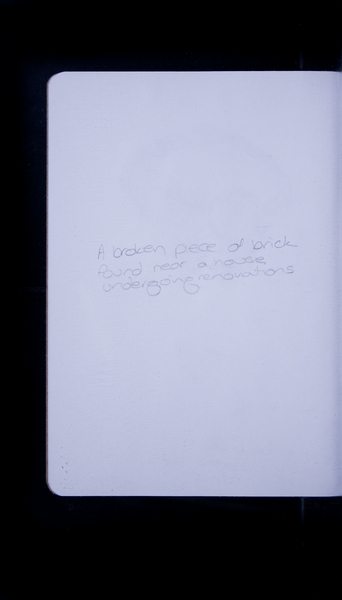 A broken piece of brick
found near a house
undergoing renovations